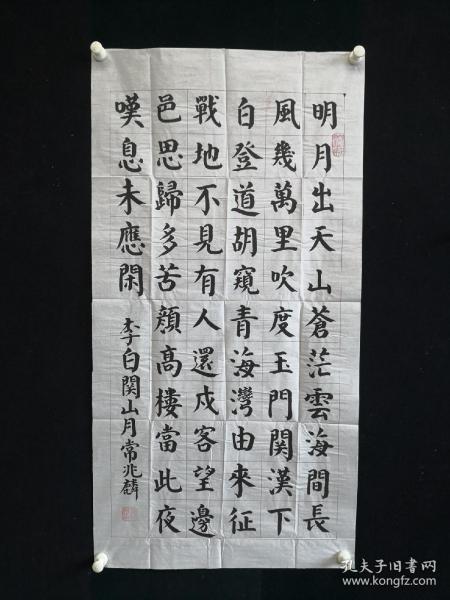 明月出天山蒼茫雲海間長
風幾萬里吹度玉門関漢下
白登道胡窺青海灣由來征
戰地不見有人還戍客望邊
邑思歸多苦顏高樓當此夜
嘆息未應閑
李白関山月常兆麟
孔夫子旧书网
www.kongfz.com